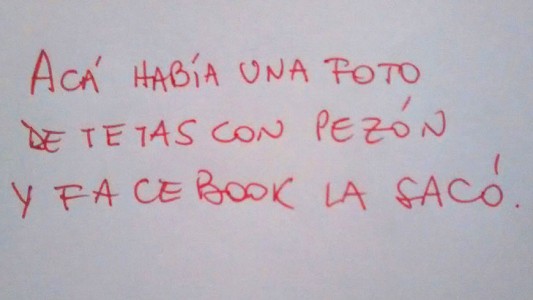 ACÁ HABÍA UNA FOTO
DE TETAS CON PEZÓN
Y FACEBOOK LA SACÓ.